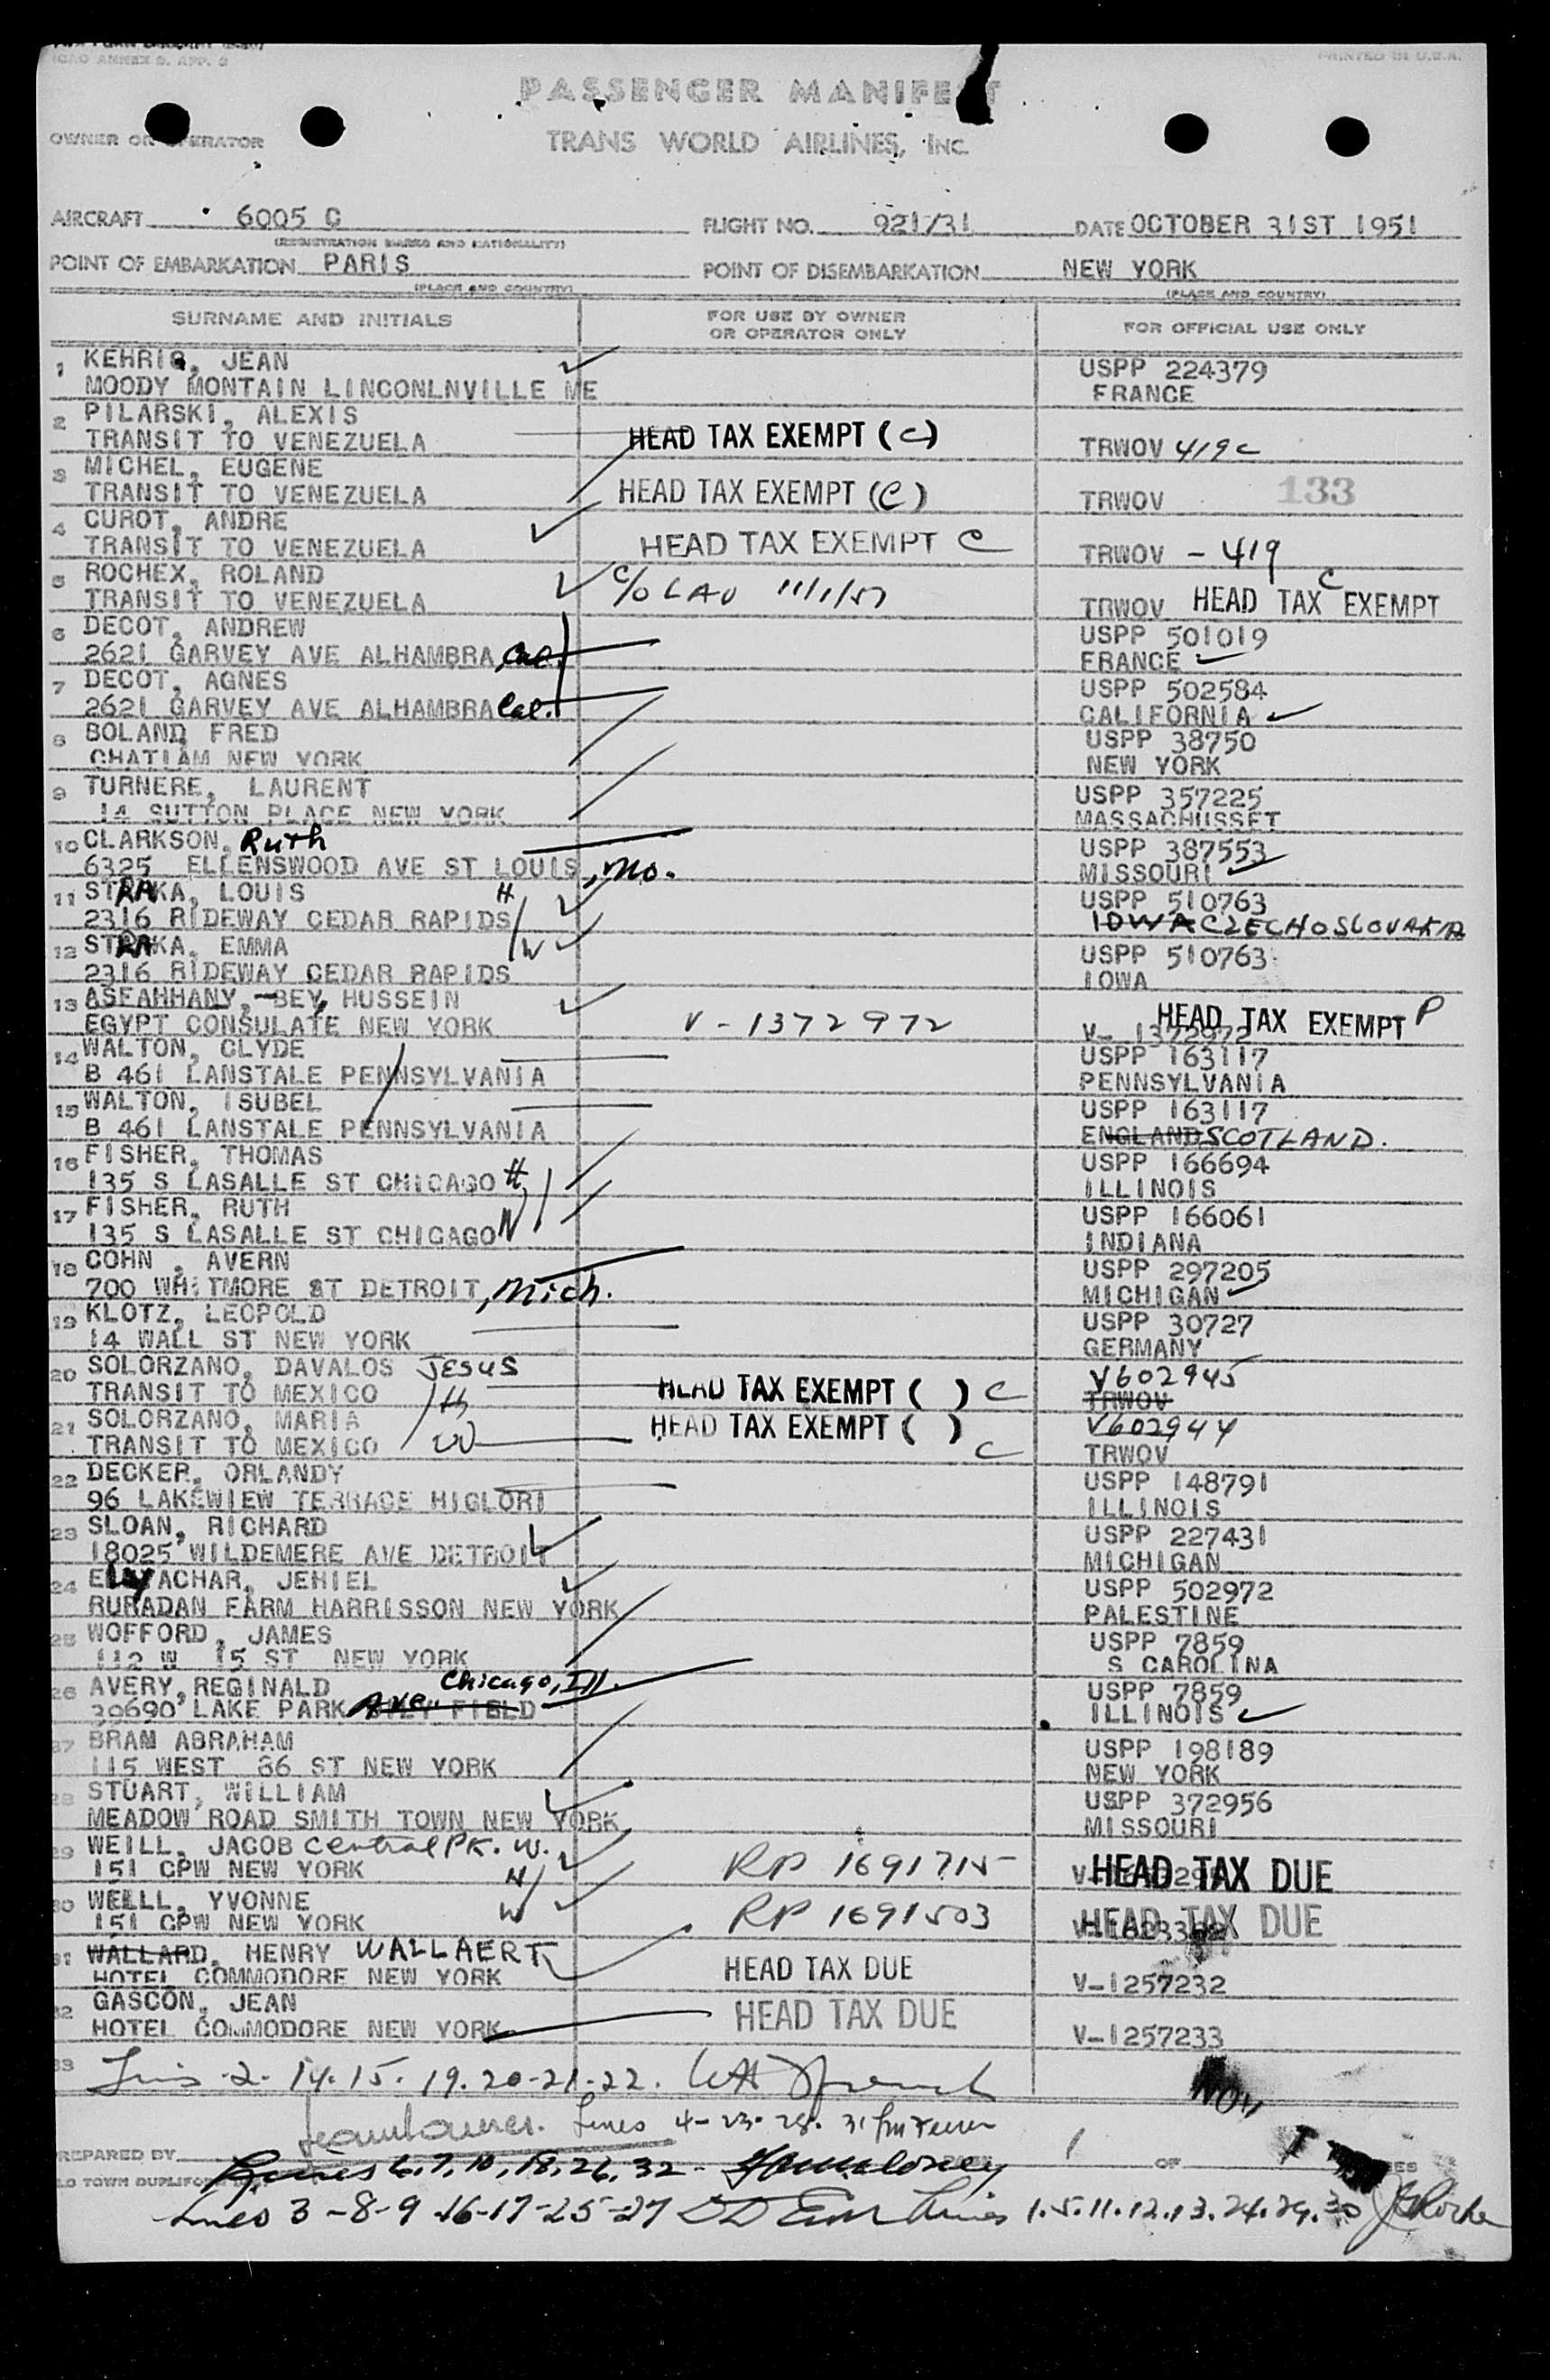 ICAO ANNEX 9, APP. 3
PRINTED IN U.S.A.
PASSENGER MANIFEST
OWNER OR OPERATOR
TRANS WORLD AIRLINES, INC.
AIRCRAFT 6005 C FLIGHT NO. 921/31 DATE OCTOBER 31ST 1951
(REGISTRATION MARKS AND NATIONALITY)
POINT OF EMBARKATION PARIS POINT OF DISEMBARKATION NEW YORK
(PLACE AND COUNTRY) (PLACE AND COUNTRY)
SURNAME AND INITIALS FOR USE BY OWNER OR OPERATOR ONLY FOR OFFICIAL USE ONLY
1 KEHRIG, JEAN USPP 224379
MOODY MONTAIN LINCONLNVILLE ME FRANCE
2 PILARSKI, ALEXIS
TRANSIT TO VENEZUELA HEAD TAX EXEMPT (C) TRWOV 419c
3 MICHEL, EUGENE
TRANSIT TO VENEZUELA HEAD TAX EXEMPT (C) TRWOV 133
4 CUROT, ANDRE
TRANSIT TO VENEZUELA HEAD TAX EXEMPT C TRWOV - 419
5 ROCHEX, ROLAND C/O LAV 11/1/51
TRANSIT TO VENEZUELA TRWOV HEAD TAX EXEMPT C
6 DECOT, ANDREW USPP 501019
2621 GARVEY AVE ALHAMBRA, Cal. FRANCE
7 DECOT, AGNES USPP 502584
2621 GARVEY AVE ALHAMBRA Cal. CALIFORNIA
8 BOLAND FRED USPP 38750
CHATLAM NEW YORK NEW YORK
9 TURNERE, LAURENT USPP 357225
14 SUTTON PLACE NEW YORK MASSACHUSSET
10 CLARKSON, Ruth USPP 387553
6325 ELLENSWOOD AVE ST LOUIS, Mo. MISSOURI
11 STRAKA, LOUIS H USPP 510763
2316 RIDEWAY CEDAR RAPIDS IOWA CZECHOSLOVAKIA
12 STRAKA, EMMA W USPP 510763
2316 RIDEWAY CEDAR RAPIDS IOWA
13 ASFAHHANY, BEY, HUSSEIN HEAD TAX EXEMPT P
EGYPT CONSULATE NEW YORK V-1372972 V- 1372972
14 WALTON, CLYDE USPP 163117
B 461 LANSTALE PENNSYLVANIA PENNSYLVANIA
15 WALTON, ISUBEL USPP 163117
B 461 LANSTALE PENNSYLVANIA ENGLAND SCOTLAND.
16 FISHER, THOMAS USPP 166694
135 S LASALLE ST CHICAGO H ILLINOIS
17 FISHER, RUTH USPP 166061
135 S LASALLE ST CHICAGO W INDIANA
18 COHN , AVERN USPP 297205
700 WHITMORE ST DETROIT, Mich. MICHIGAN
19 KLOTZ, LEOPOLD USPP 30727
14 WALL ST NEW YORK GERMANY
20 SOLORZANO, DAVALOS JESUS V602945
TRANSIT TO MEXICO H HEAD TAX EXEMPT ( ) C TRWOV
21 SOLORZANO, MARIA HEAD TAX EXEMPT ( ) C V602944
TRANSIT TO MEXICO W TRWOV
22 DECKER, ORLANDY USPP 148791
96 LAKEWIEW TERRACE HIGLORI ILLINOIS
23 SLOAN, RICHARD USPP 227431
18025 WILDEMERE AVE DETROIT MICHIGAN
24 ELYACHAR, JEHIEL USPP 502972
RURADAN FARM HARRISSON NEW YORK PALESTINE
25 WOFFORD, JAMES USPP 7859
112 W 15 ST NEW YORK S CAROLINA
26 AVERY, REGINALD Chicago, Ill. USPP 7859
39690 LAKE PARK Ave. FIELD ILLINOIS
27 BRAM ABRAHAM USPP 198189
115 WEST 86 ST NEW YORK NEW YORK
28 STUART, WILLIAM USPP 372956
MEADOW ROAD SMITH TOWN NEW YORK MISSOURI
29 WEILL, JACOB Central PK. W.
151 CPW NEW YORK H RP 1691715 HEAD TAX DUE
30 WEILL, YVONNE W RP 1691503
151 CPW NEW YORK HEAD TAX DUE
31 WALLARD, HENRY WALLAERT
HOTEL COMMODORE NEW YORK HEAD TAX DUE V-1257232
32 GASCON, JEAN
HOTEL COMMODORE NEW YORK HEAD TAX DUE V-1257233
33 Lines -2- 14. 15. 19. 20-21-22.
NOV
Lines 4-23-28. 31
PREPARED BY 1 OF
Lines 6, 7, 10, 18, 26, 32
Lines 3-8-9-16-17-25-27 Lines 1.5.11.12.13.24.29.30